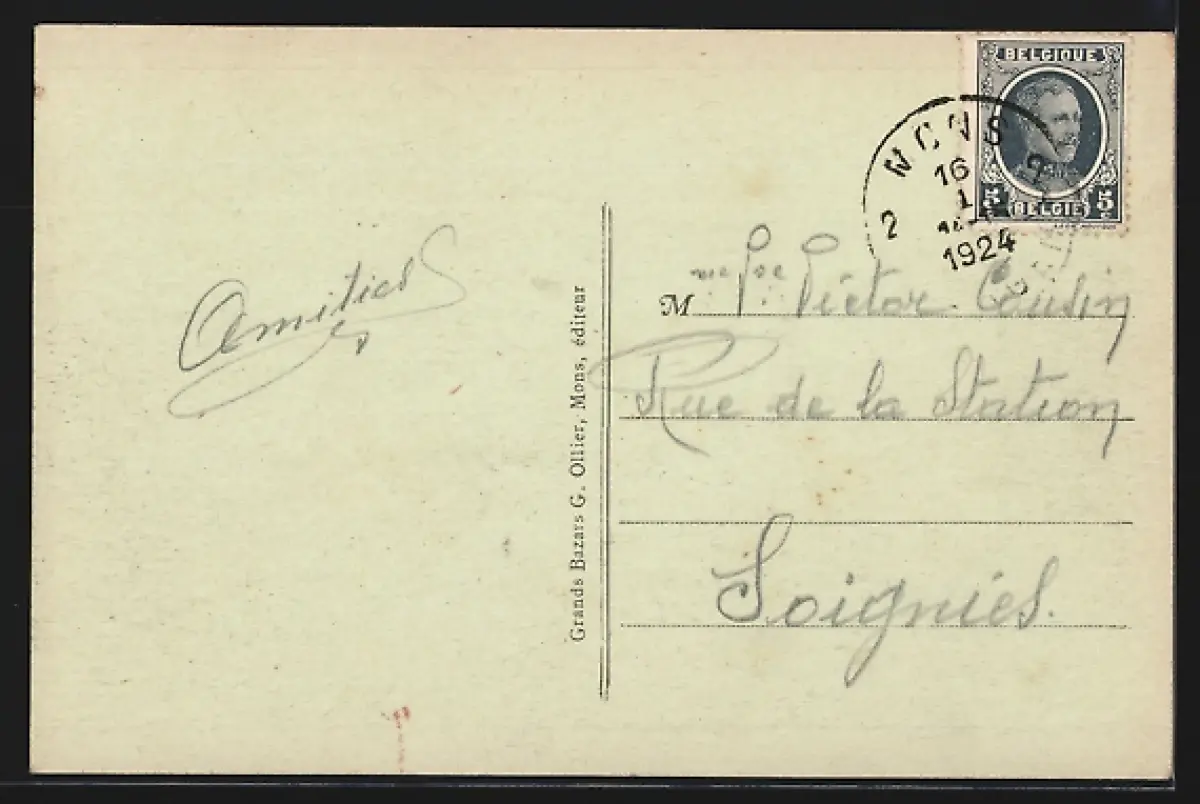 BELGIQUE
5 BELGIE 5
MONS
16
1
1924
2
Amitiés
Mme Vve Victor Cousin
Rue de la Station
Soignies.
Grands Bazars G. Ollier, Mons, éditeur